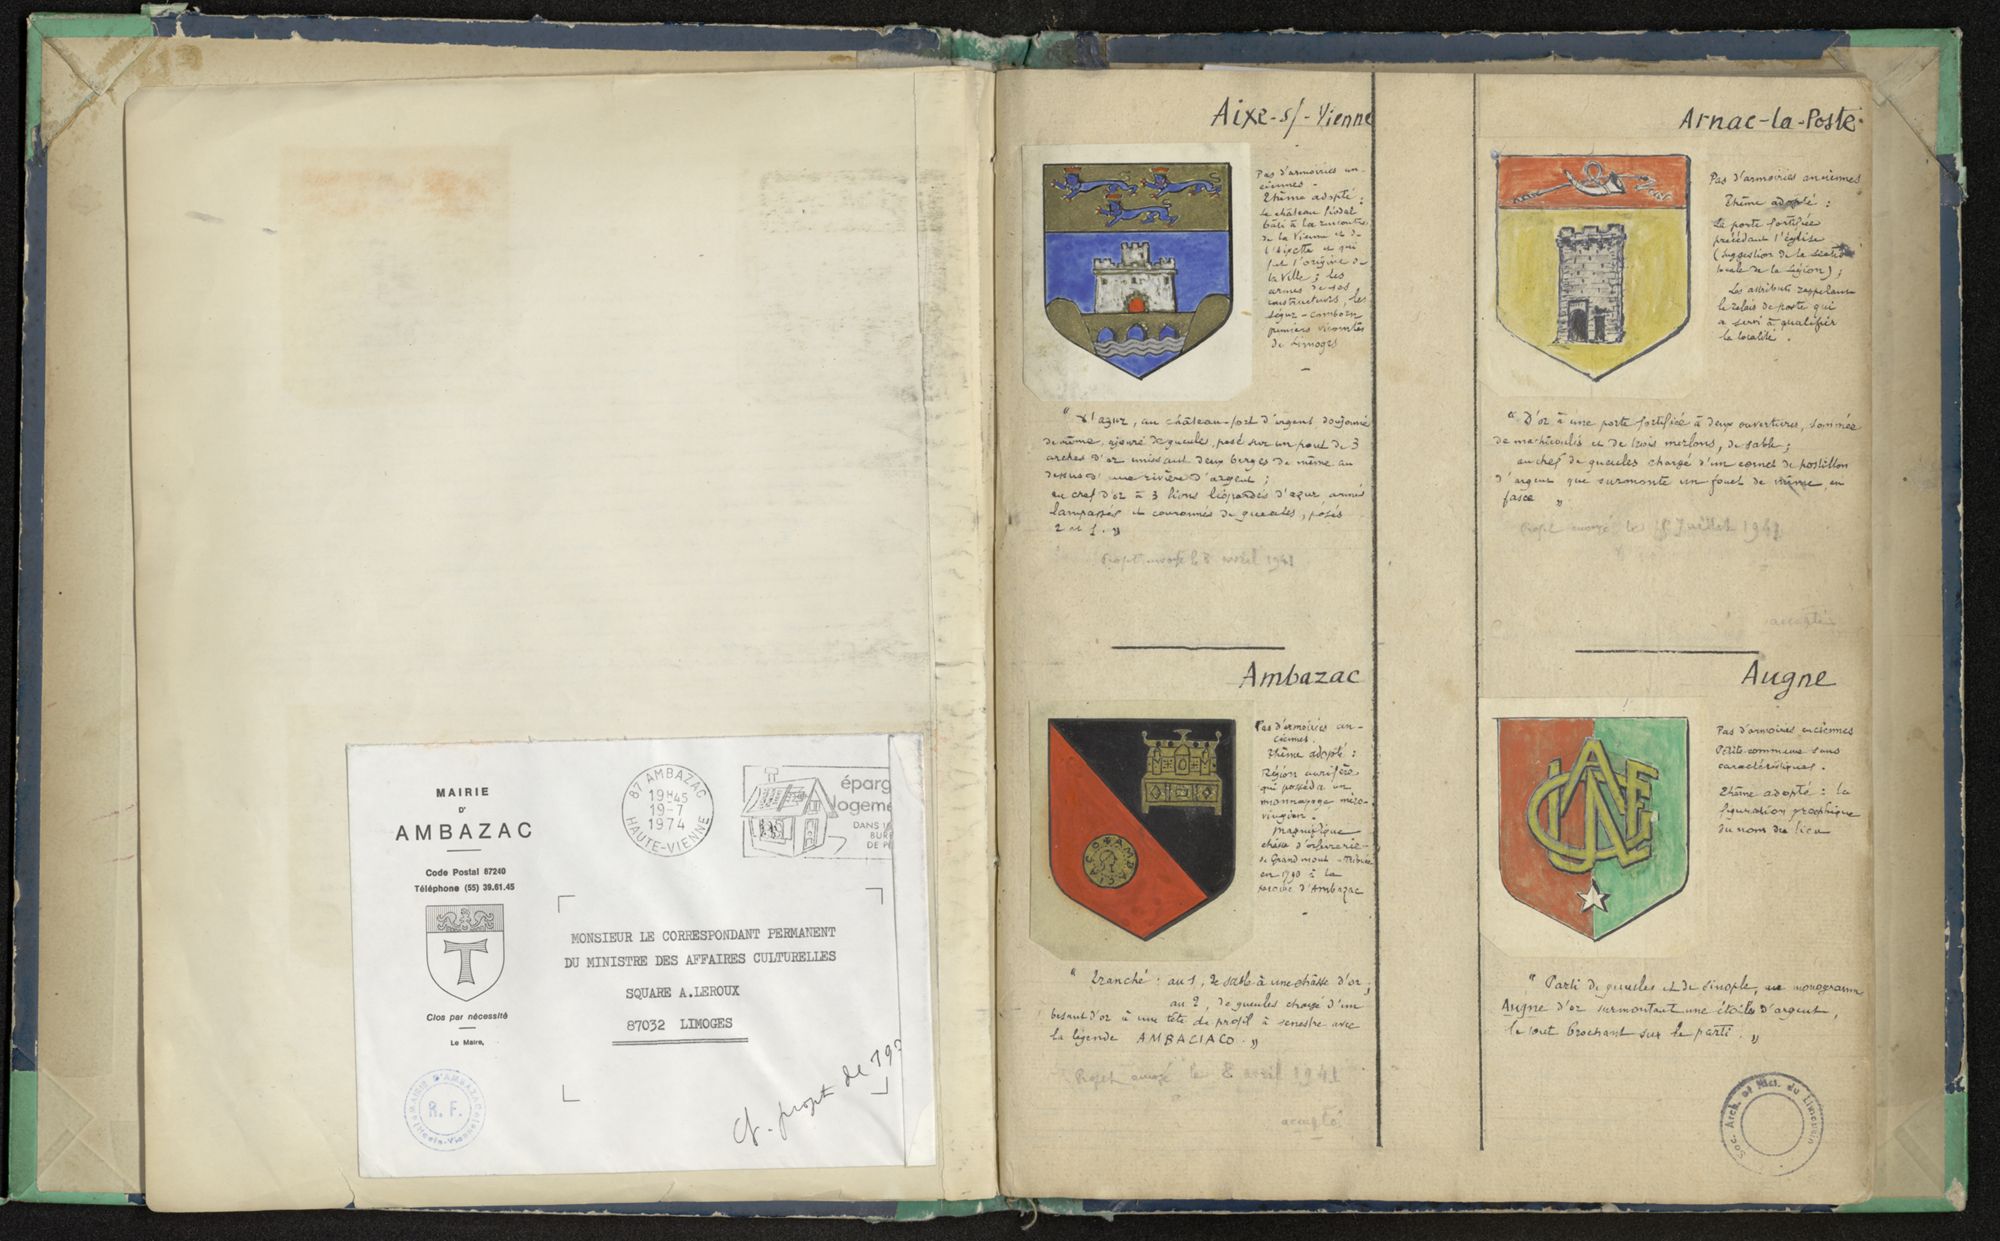 MAIRIE
D'
AMBAZAC
Code Postal 87240
Téléphone (55) 39.61.45
Clos par nécessité
Le Maire,
MAIRIE D'AMBAZAC
R. F.
(Haute-Vienne)
87 AMBAZAC
19 H 45
19-7
1974
HAUTE-VIENNE
éparg
logeme
DANS
BUR
DE P
MONSIEUR LE CORRESPONDANT PERMANENT
DU MINISTRE DES AFFAIRES CULTURELLES
SQUARE A.LEROUX
87032 LIMOGES
Cf. projet de 19
Aixe-s/-Vienne
Pas d'armoiries an-
ciennes.
Thème adopté :
le château féodal
bâti à la rencontre
de la Vienne et de
l'Aixette et qui
fut l'origine de
la ville ; les
armes de ses
constructeurs, les
Ségur-Comborn
premiers vicomtes
de Limoges
"D'azur, au château-fort d'argent donjonné
de même, ajouré de gueules, posé sur un pont de 3
arches d'or unissant deux berges de même au
dessus d'une rivière d'argent ;
au chef d'or à 3 lions léopardés d'azur armés
lampassés et couronnés de gueules, posés
2 et 1."
Projet envoyé le 8 avril 1941
Ambazac
Pas d'armoiries an-
ciennes.
Thème adopté :
Région aurifère
qui posséda un
monnayage méro-
vingien.
Magnifique
châsse d'orfèvrerie
de Grandmont
en 1790 à la
paroisse d'Ambazac
AMBACIACO
"Tranché : au 1, de sable à une châsse d'or ;
au 2, de gueules chargé d'un
besant d'or à une tête de profil à senestre avec
la légende AMBACIACO."
Projet envoyé le 8 avril 1941
accepté
Arnac-la-Poste
Pas d'armoiries anciennes
Thème adopté :
La porte fortifiée
précédant l'église
(suggestion de la section
locale de la Légion) ;
Les attributs rappelant
le relais de poste qui
a servi à qualifier
la localité.
"D'or à une porte fortifiée à deux ouvertures, sommée
de machicoulis et de trois merlons, de sable ;
au chef de gueules chargé d'un cornet de postillon
d'argent que surmonte un fouet de même, en
fasce"
Projet envoyé le 15 Juillet 1941
accepté
Augne
Pas d'armoiries anciennes
Petite commune sans
caractéristiques.
Thème adopté : la
figuration graphique
du nom du lieu
AUGNE
"Parti de gueules et de sinople, au monogramme
Augne d'or surmontant une étoile d'argent,
le tout brochant sur le parti."
Soc. Arch. et Hist. du Limousin